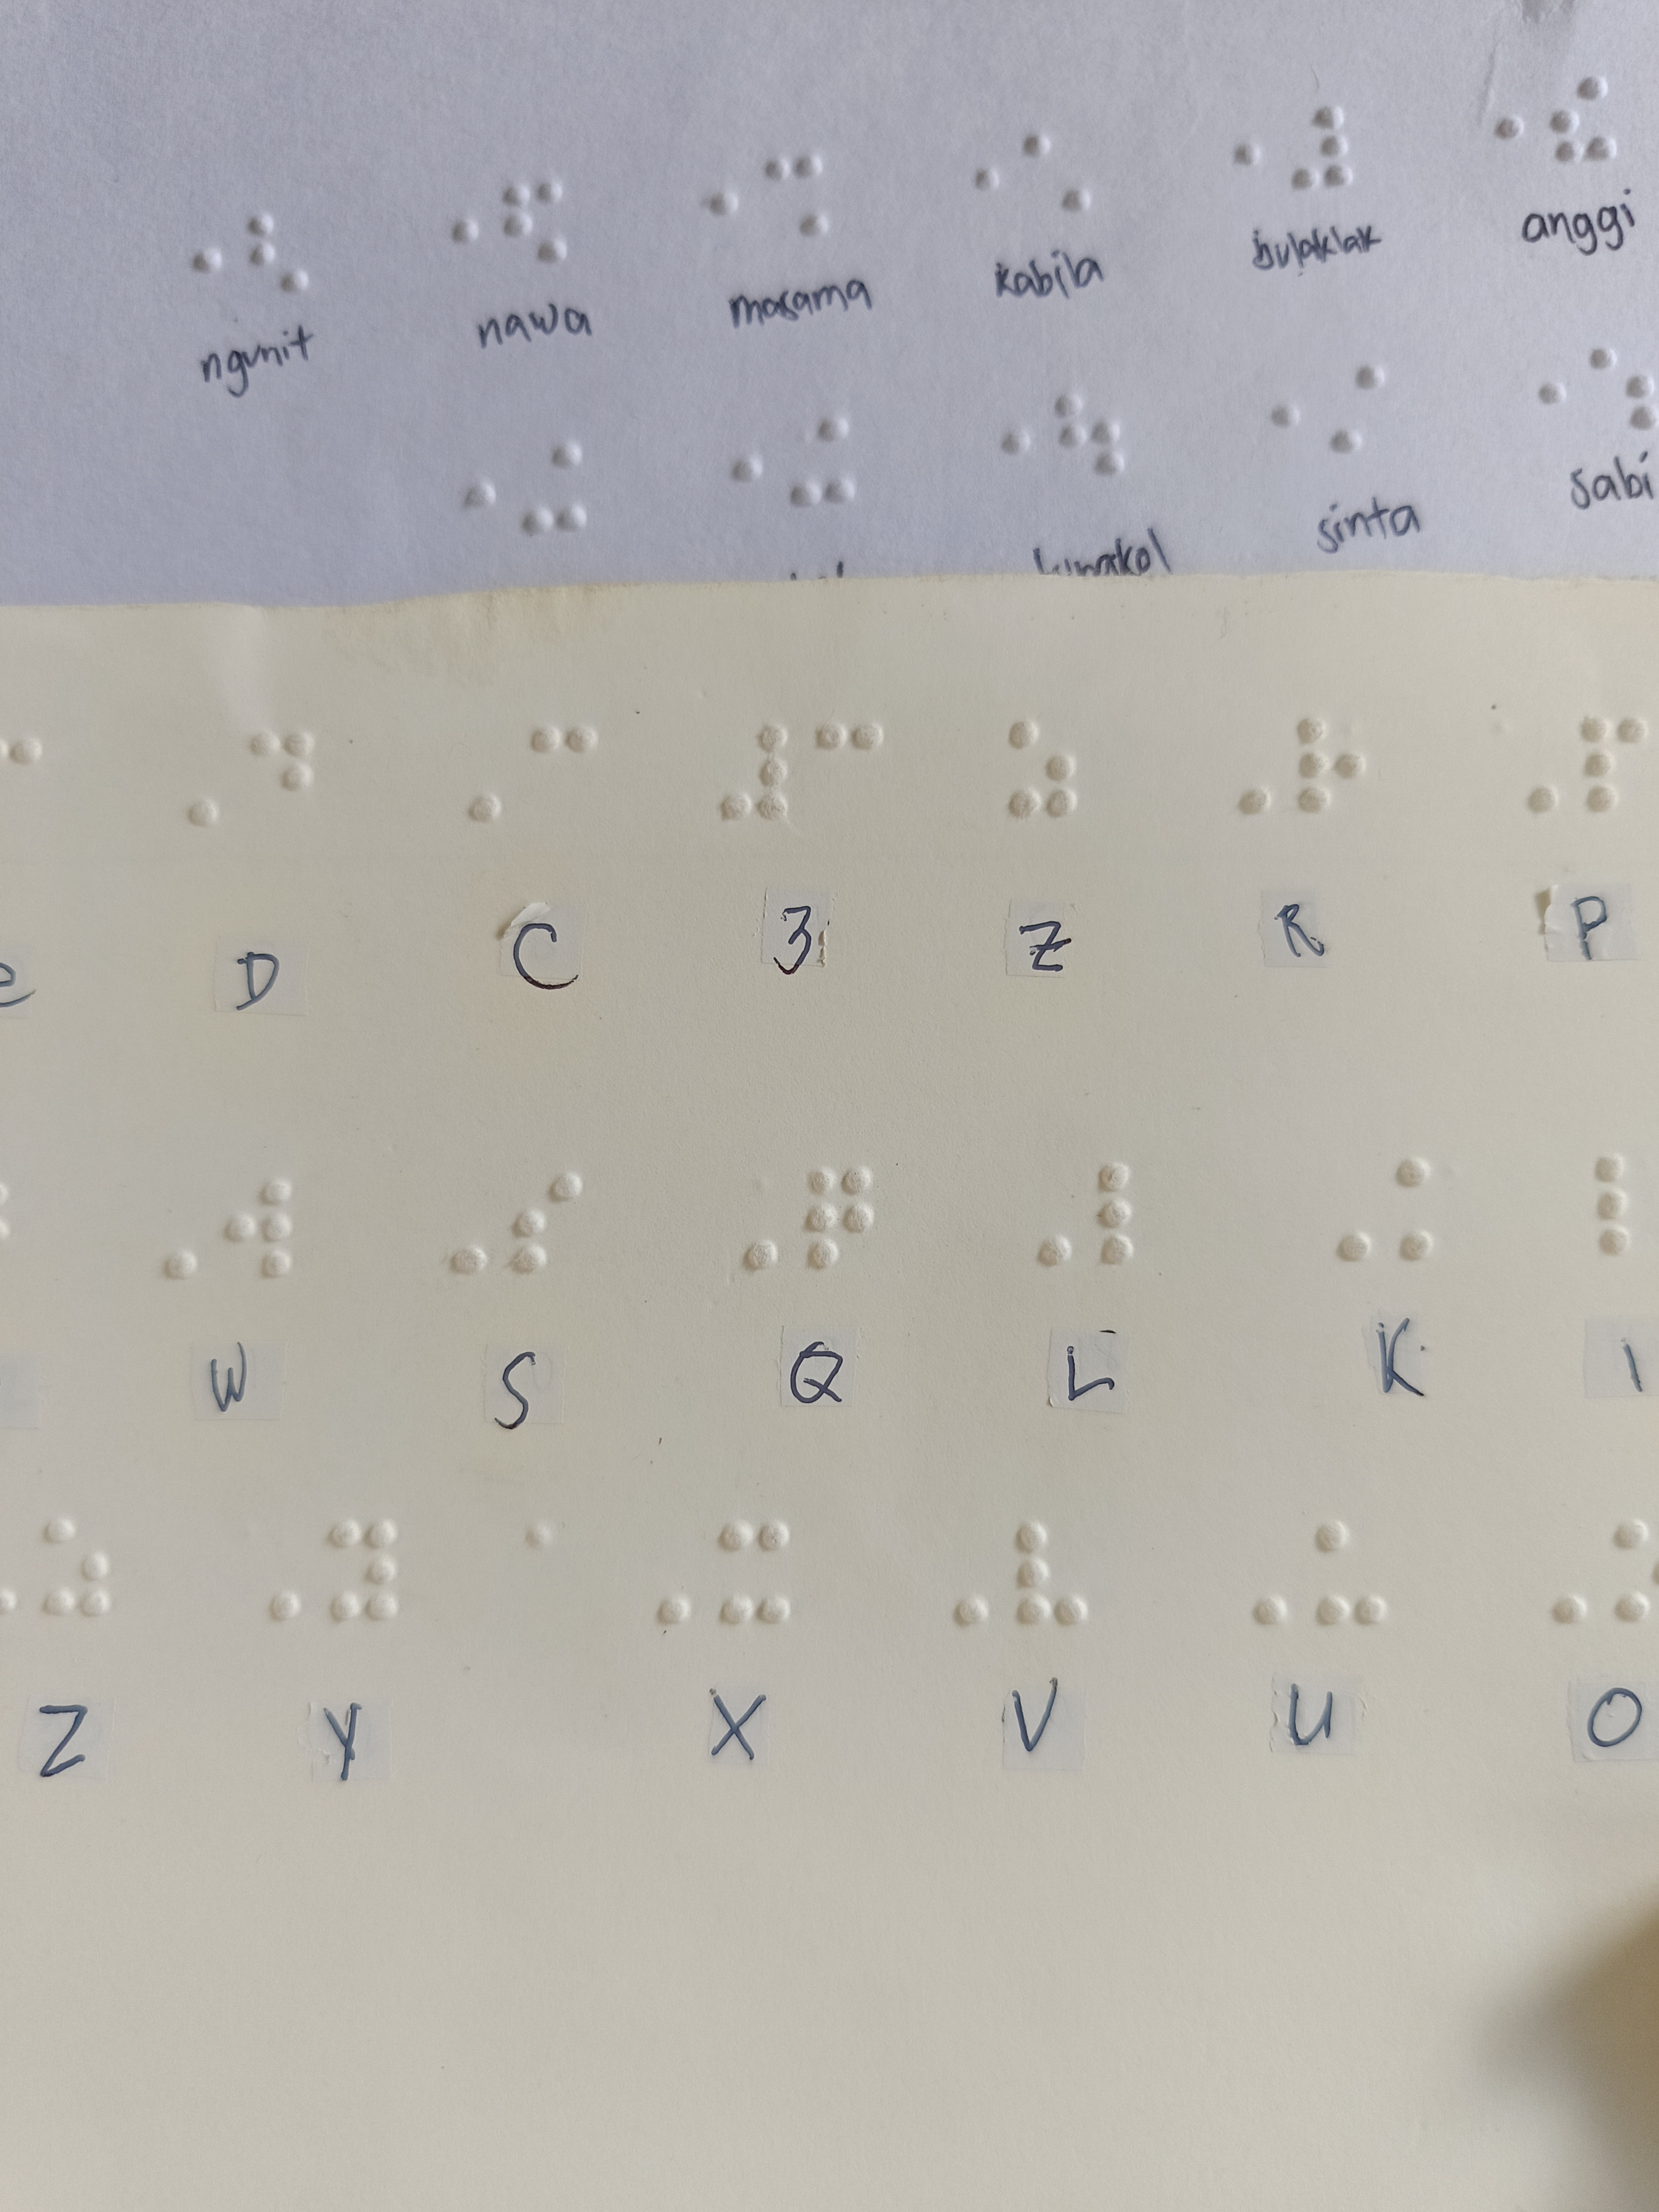 ngunit nawa masama kabila bulaklak anggi
sinta sabi
D C 3 Z R P
W S Q L K I
Z Y X V U O